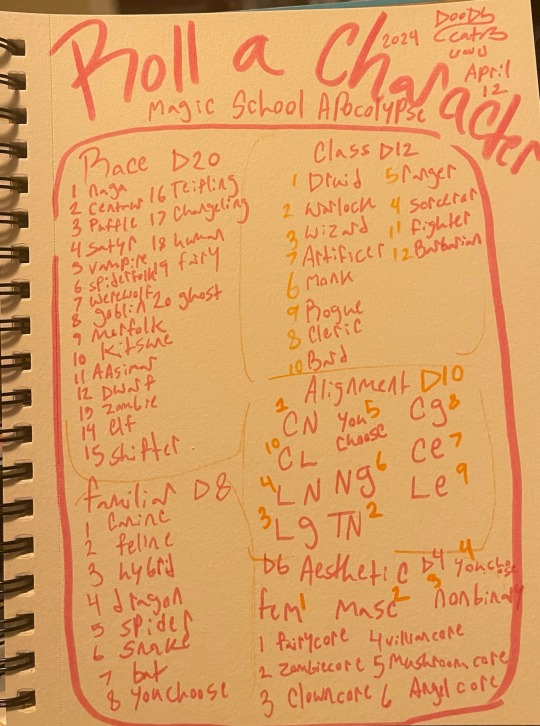 Roll a Character
2024
April
12
Magic School Apocolypse
Race D20
1 naga
2 Centaur
3 Puffle
4 Satyr
5 vampire
6 spiderfolk
7 werewolf
8 goblin
9 Merfolk
10 Kitsune
11 AAsimar
12 Dwarf
13 Zombie
14 elf
15 shifter
16 Teifling
17 Changeling
18 human
19 fairy
20 ghost
Class D12
1 Druid
2 warlock
3 wizard
7 Artificer
6 monk
9 Rogue
8 Cleric
10 Bard
5 ranger
4 sorcerer
11 fighter
12 Barbarian
Alignment D10
1 CN
You choose 5
Cg 8
10 CL
Ng 6
Ce 7
4 LN
Le 9
3 Lg
TN 2
familiar D8
1 Canine
2 feline
3 hybrid
4 dragon
5 spider
6 snake
7 bat
8 You choose
D6 Aesthetic D4
4 You choose
fem 1 masc 2 nonbinary 3
1 fairycore 4 villiancore
2 Zombiecore 5 Mushroom core
3 Clowncore 6 Angel core